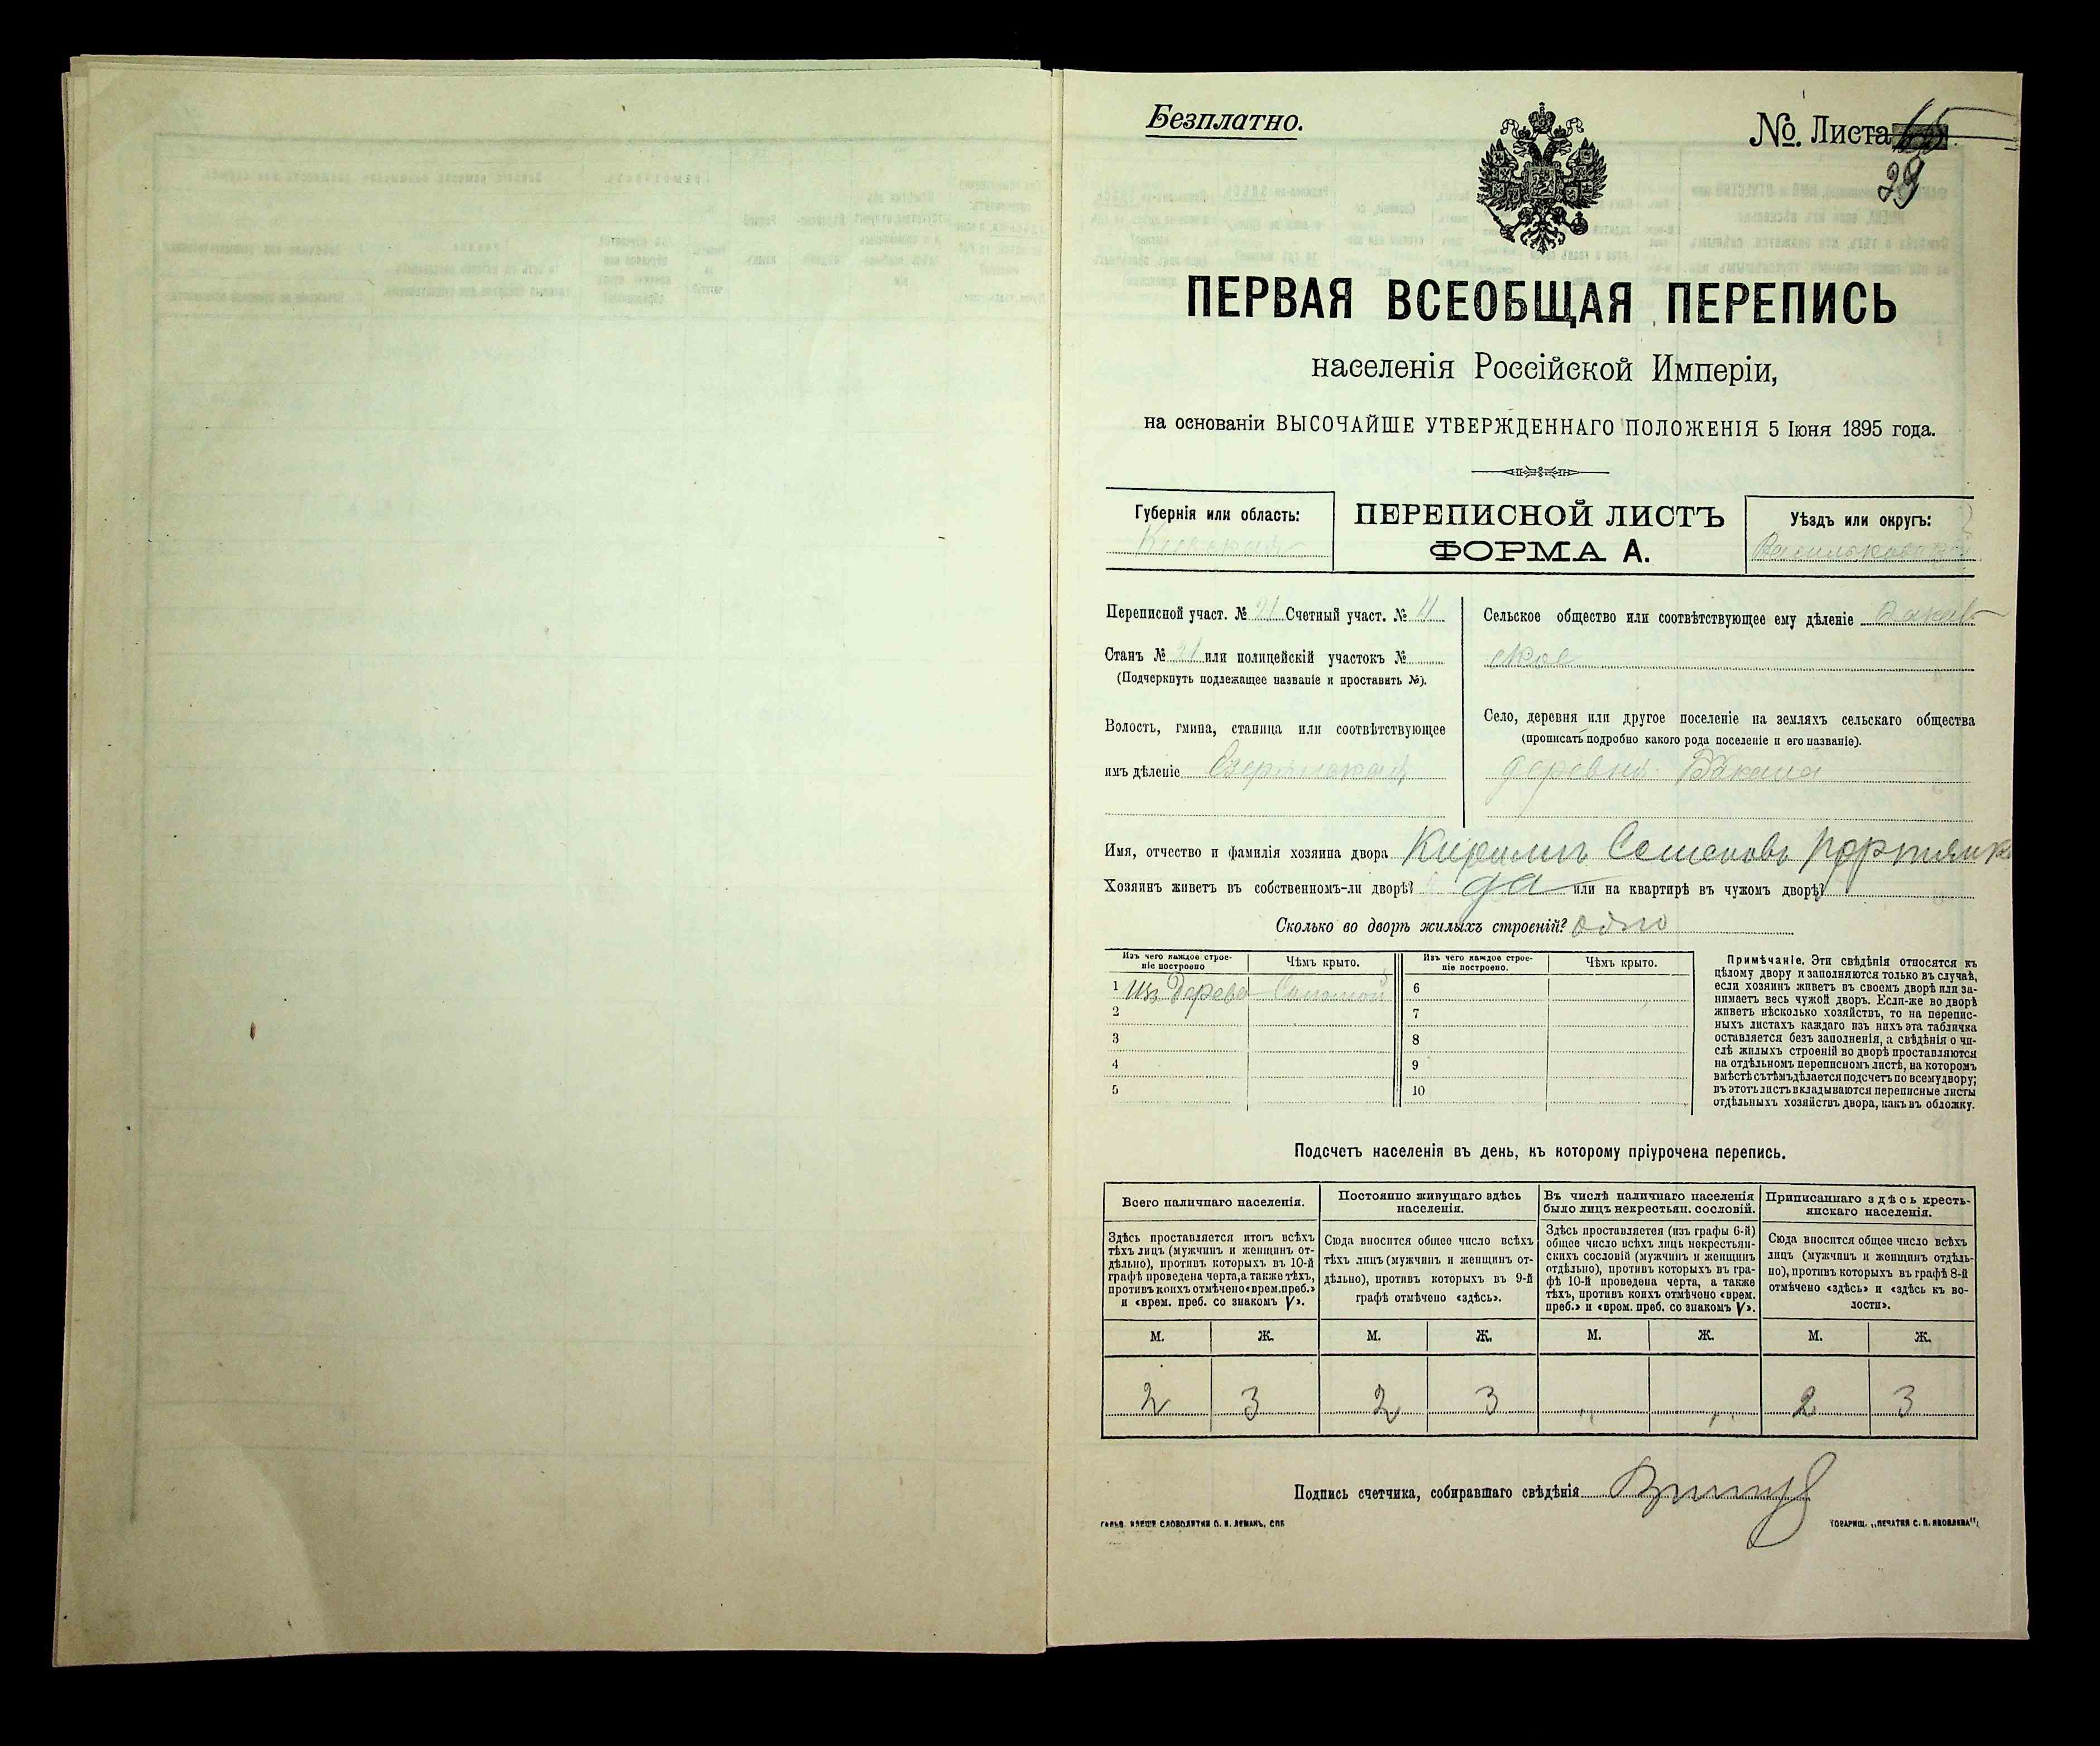 Безплатно.
№. Листа
29
ПЕРВАЯ ВСЕОБЩАЯ ПЕРЕПИСЬ
населенія Россійской Имперіи,
на основаніи ВЫСОЧАЙШЕ УТВЕРЖДЕННАГО ПОЛОЖЕНІЯ 5 Іюня 1895 года.
Губернія или область:
Кіевская
ПЕРЕПИСНОЙ ЛИСТЪ
ФОРМА А.
Уѣздъ или округъ:
Васильковскій
Переписной участ. № 21 Счетный участ. № 4
Станъ № или полицейскій участокъ №
(Подчеркнуть подлежащее названіе и проставить №).
Волость, гмина, станица или соотвѣтствующее
имъ дѣленіе Езерянская
Сельское общество или соотвѣтствующее ему дѣленіе
ское
Село, деревня или другое поселеніе на земляхъ сельскаго общества
(прописать подробно какого рода поселеніе и его названіе).
деревня
Имя, отчество и фамилія хозяина двора Кирилъ Семеновъ Портянко
Хозяинъ живетъ въ собственномъ-ли дворѣ? да или на квартирѣ въ чужомъ дворѣ?
Сколько во дворѣ жилыхъ строеній? одно
Изъ чего каждое строе-
ніе построено
Чѣмъ крыто.
Изъ чего каждое строе-
ніе построено.
Чѣмъ крыто.
1 изъ дерева Соломой 6
2 7
3 8
4 9
5 10
Примѣчаніе. Эти свѣдѣнія относятся къ
цѣлому двору и заполняются только въ случаѣ,
если хозяинъ живетъ въ своемъ дворѣ или за-
нимаетъ весь чужой дворъ. Если-же во дворѣ
живетъ нѣсколько хозяйствъ, то на перепис-
ныхъ листахъ каждаго изъ нихъ эта табличка
оставляется безъ заполненія, а свѣдѣнія о чи-
слѣ жилыхъ строеній во дворѣ проставляются
на отдѣльномъ переписномъ листѣ, на которомъ
вмѣстѣ съ тѣмъ дѣлается подсчетъ по всему двору;
въ этотъ листъ вкладываются переписные листы
отдѣльныхъ хозяйствъ двора, какъ въ обложку.
Подсчетъ населенія въ день, къ которому пріурочена перепись.
Всего наличнаго населенія.
Постоянно живущаго здѣсь
населенія.
Въ числѣ наличнаго населенія
было лицъ некрестьян. сословій.
Приписаннаго здѣсь кресть-
янскаго населенія.
Здѣсь проставляется итогъ всѣхъ
тѣхъ лицъ (мужчинъ и женщинъ от-
дѣльно), противъ которыхъ въ 10-й
графѣ проведена черта, а также тѣхъ,
противъ коихъ отмѣчено «врем. преб.»
и «врем. преб. со знакомъ V».
Сюда вносится общее число всѣхъ
тѣхъ лицъ (мужчинъ и женщинъ от-
дѣльно), противъ которыхъ въ 9-й
графѣ отмѣчено «здѣсь».
Здѣсь проставляется (изъ графы 6-й)
общее число всѣхъ лицъ некрестьян-
скихъ сословій (мужчинъ и женщинъ
отдѣльно), противъ которыхъ въ гра-
фѣ 10-й проведена черта, а также
тѣхъ, противъ коихъ отмѣчено «врем.
преб.» и «врем. преб. со знакомъ V».
Сюда вносится общее число всѣхъ
лицъ (мужчинъ и женщинъ отдѣль-
но), противъ которыхъ въ графѣ 8-й
отмѣчено «здѣсь» и «здѣсь къ во-
лости».
М. Ж. М. Ж. М. Ж. М. Ж.
2 3 2 3 2 3
Подпись счетчика, собиравшаго свѣдѣнія
СЛОВОЛИТНИ О. И. ЛЕМАНЪ, СПБ.
ТОВАРИЩ. „ПЕЧАТНЯ С. П. ЯКОВЛЕВА“.